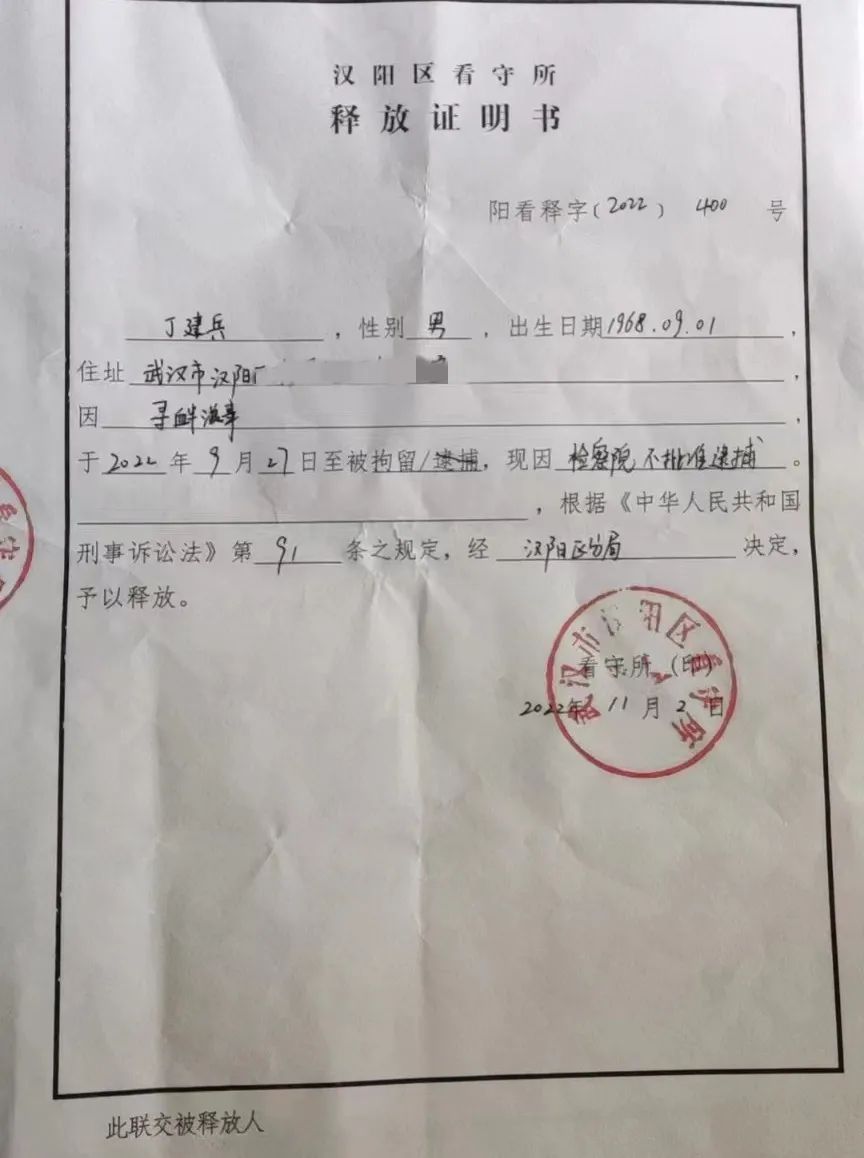 汉阳区看守所
释放证明书
阳看释字(2022) 400 号
丁建兵，性别男，出生日期1968.09.01，
住址武汉市汉阳
因寻衅滋事，
于2022年9月27日至被拘留/逮捕，现因检察院不批准逮捕。
，根据《中华人民共和国
刑事诉讼法》第91条之规定，经汉阳区分局决定，
予以释放。
武汉市汉阳区看守所
看守所（印）
2022年11月2日
此联交被释放人